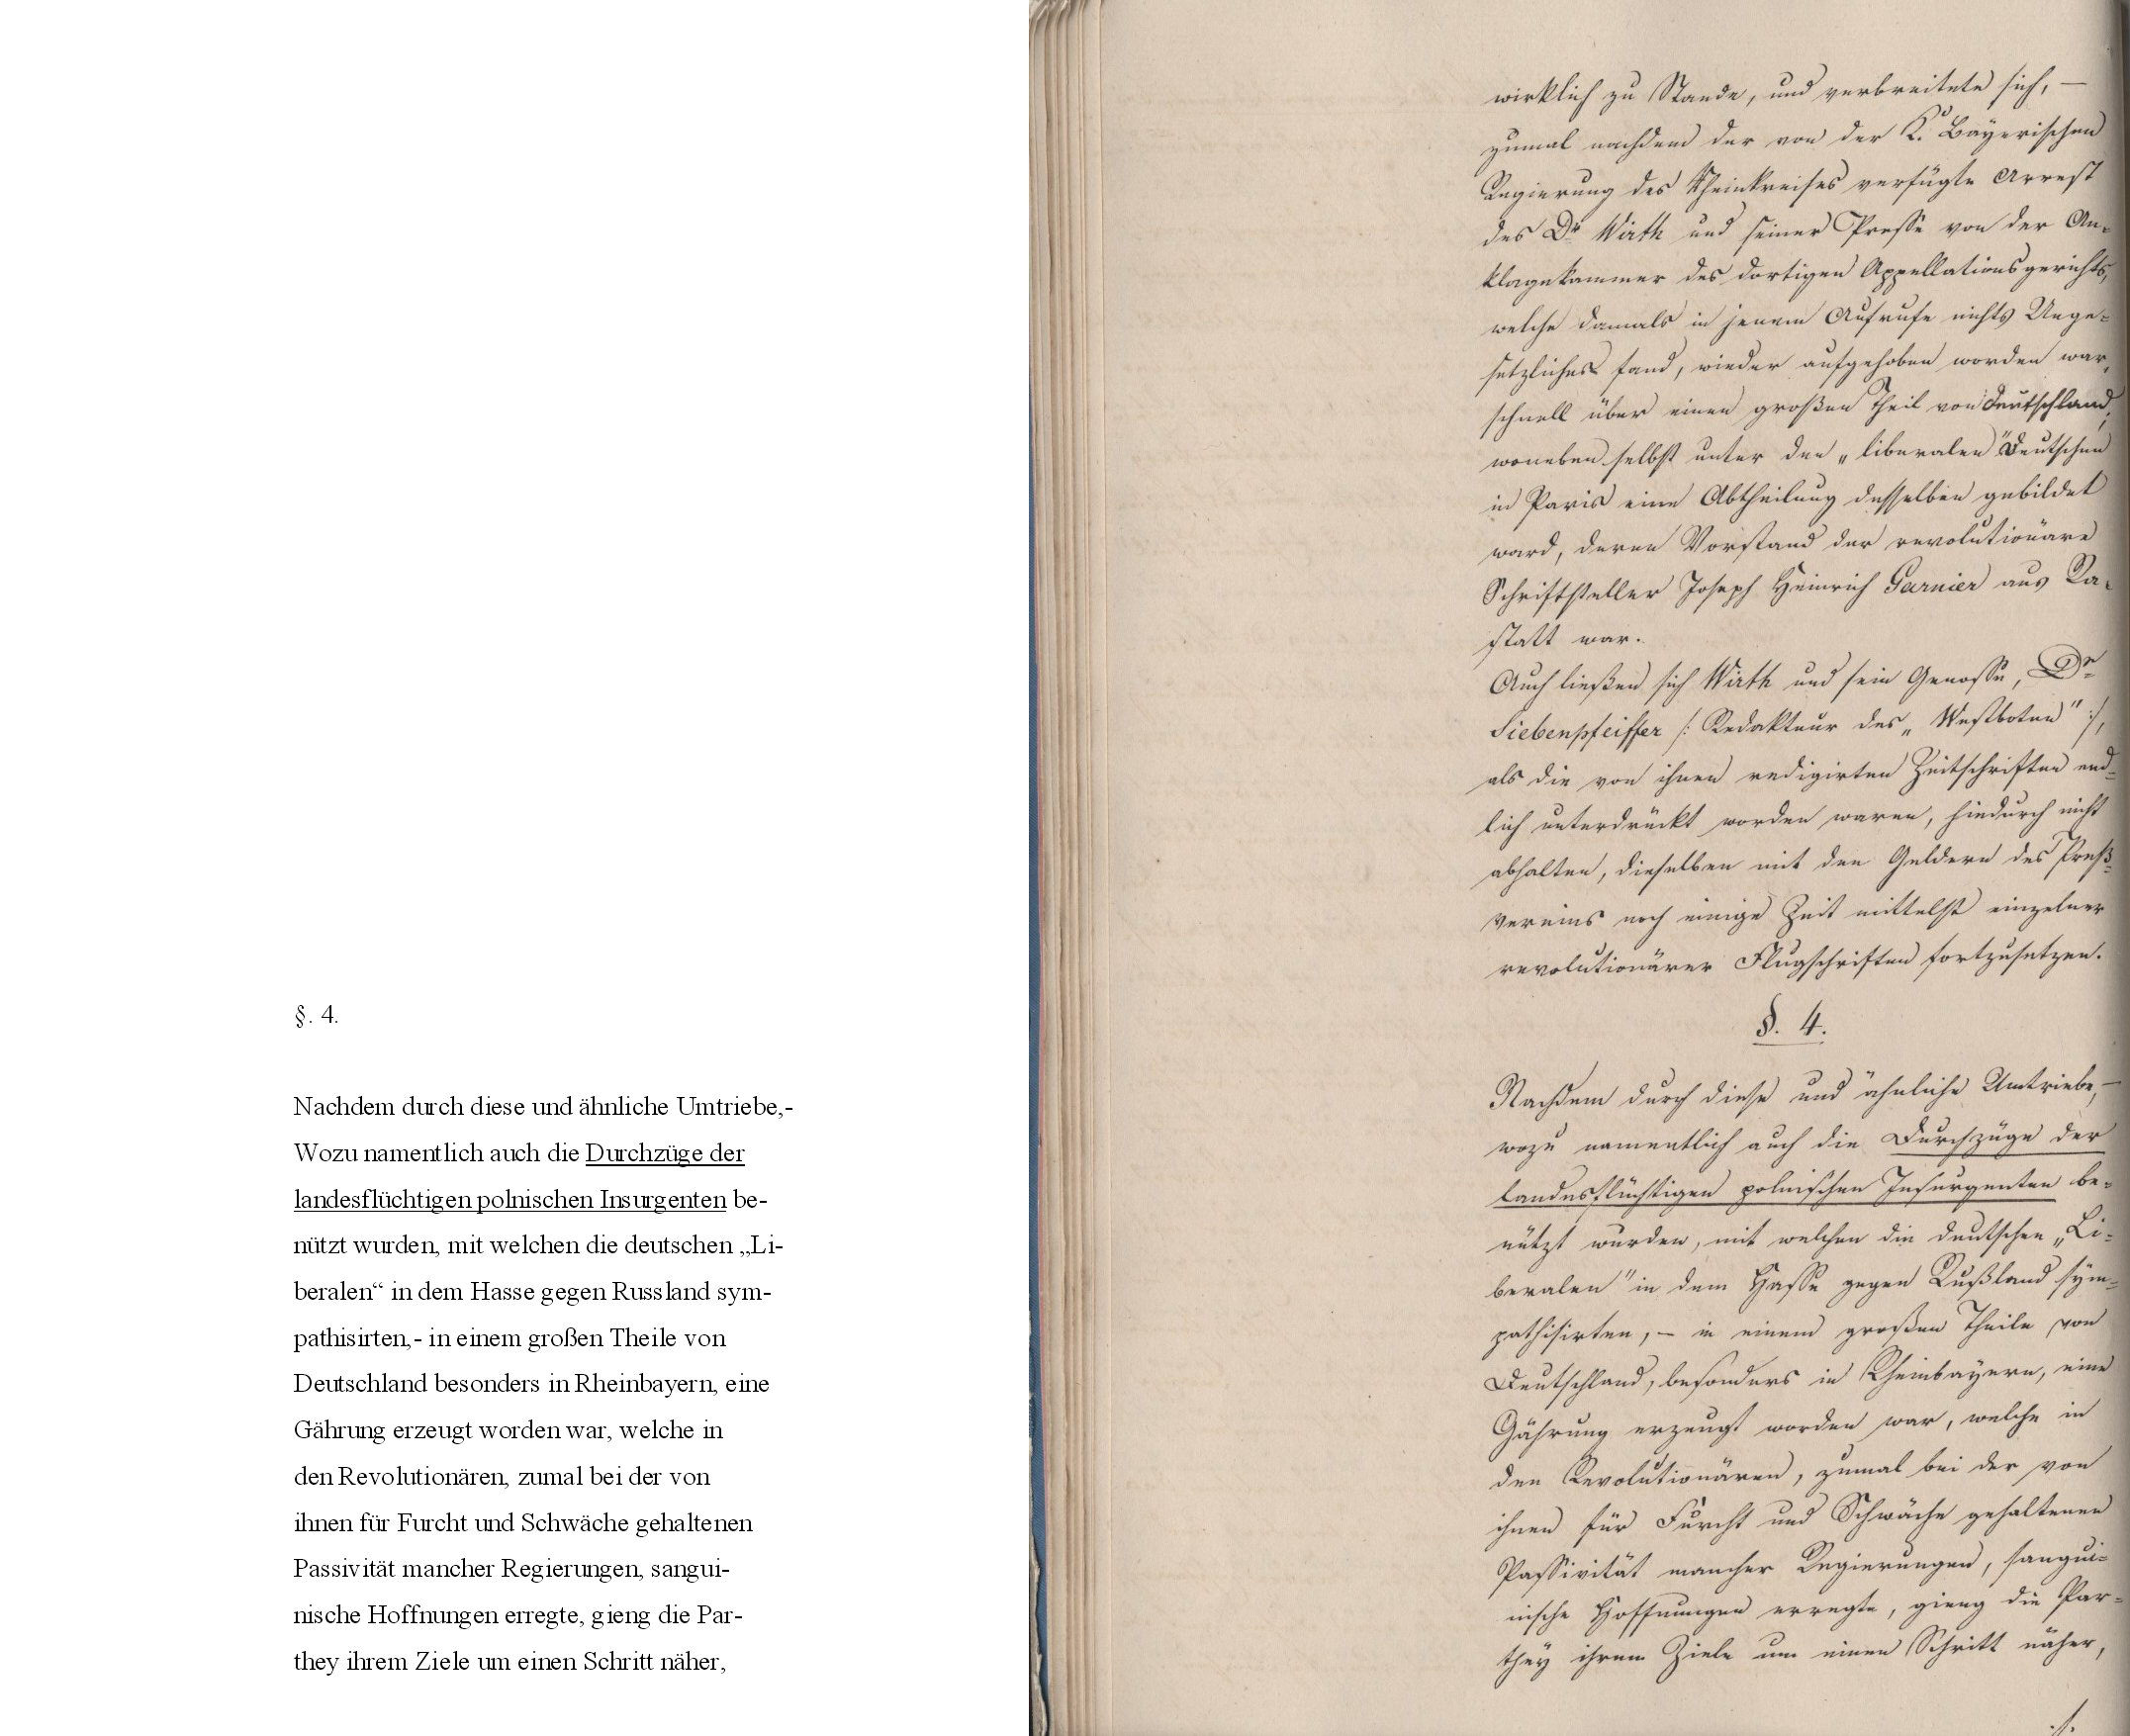 §. 4.
Nachdem durch diese und ähnliche Umtriebe,-
Wozu namentlich auch die Durchzüge der
landesflüchtigen polnischen Insurgenten be-
nützt wurden, mit welchen die deutschen „Li-
beralen“ in dem Hasse gegen Russland sym-
pathisirten,- in einem großen Theile von
Deutschland besonders in Rheinbayern, eine
Gährung erzeugt worden war, welche in
den Revolutionären, zumal bei der von
ihnen für Furcht und Schwäche gehaltenen
Passivität mancher Regierungen, sangui-
nische Hoffnungen erregte, gieng die Par-
they ihrem Ziele um einen Schritt näher,
wirklich zu Stande, und verbreitete sich, —
zumal nachdem der von der K. Bayerischen
Regierung des Rheinkreises verfügte Arrest
des Dr. Wirth und seiner Presse von der An-
klagekammer des dortigen Appellationsgerichts,
welche damals in jenem Aufrufe nichts Unge-
setzliches fand, wieder aufgehoben worden war,
schnell über einen großen Theil von Deutschland,
woneben selbst unter den „liberalen" Deutschen
in Paris eine Abtheilung desselben gebildet
ward, deren Vorstand der revolutionäre
Schriftsteller Joseph Heinrich Garnier aus Ra-
statt war.
Auch ließen sich Wirth und sein Genosse, Dr.
Siebenpfeiffer /: Redakteur des „Westboten" :/,
als die von ihnen redigirten Zeitschriften end-
lich unterdrückt worden waren, hiedurch nicht
abhalten, dieselben mit den Geldern des Preß-
vereins noch einige Zeit mittelst einzelner
revolutionärer Flugschriften fortzusetzen.
§. 4.
Nachdem durch diese und ähnliche Umtriebe, —
wozu namentlich auch die Durchzüge der
landesflüchtigen polnischen Insurgenten be-
nützt wurden, mit welchen die deutschen „Li-
beralen" in dem Hasse gegen Rußland sym-
pathisirten, — in einem großen Theile von
Deutschland, besonders in Rheinbayern, eine
Gährung erzeugt worden war, welche in
den Revolutionären, zumal bei der von
ihnen für Furcht und Schwäche gehaltenen
Passivität mancher Regierungen, sangui-
nische Hoffnungen erregte, gieng die Par-
they ihrem Ziele um einen Schritt näher,